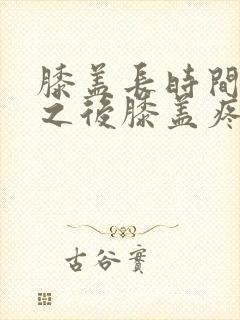 膝盖長時間
之後膝盖疼
古谷實